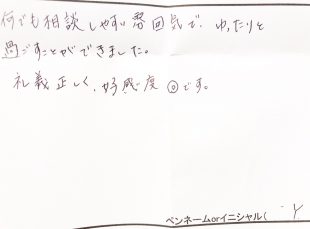 何でも相談しやすい雰囲気で、ゆったりと
過ごすことができました。
礼義正しく、好感度◎です。
ペンネームorイニシャル( Y